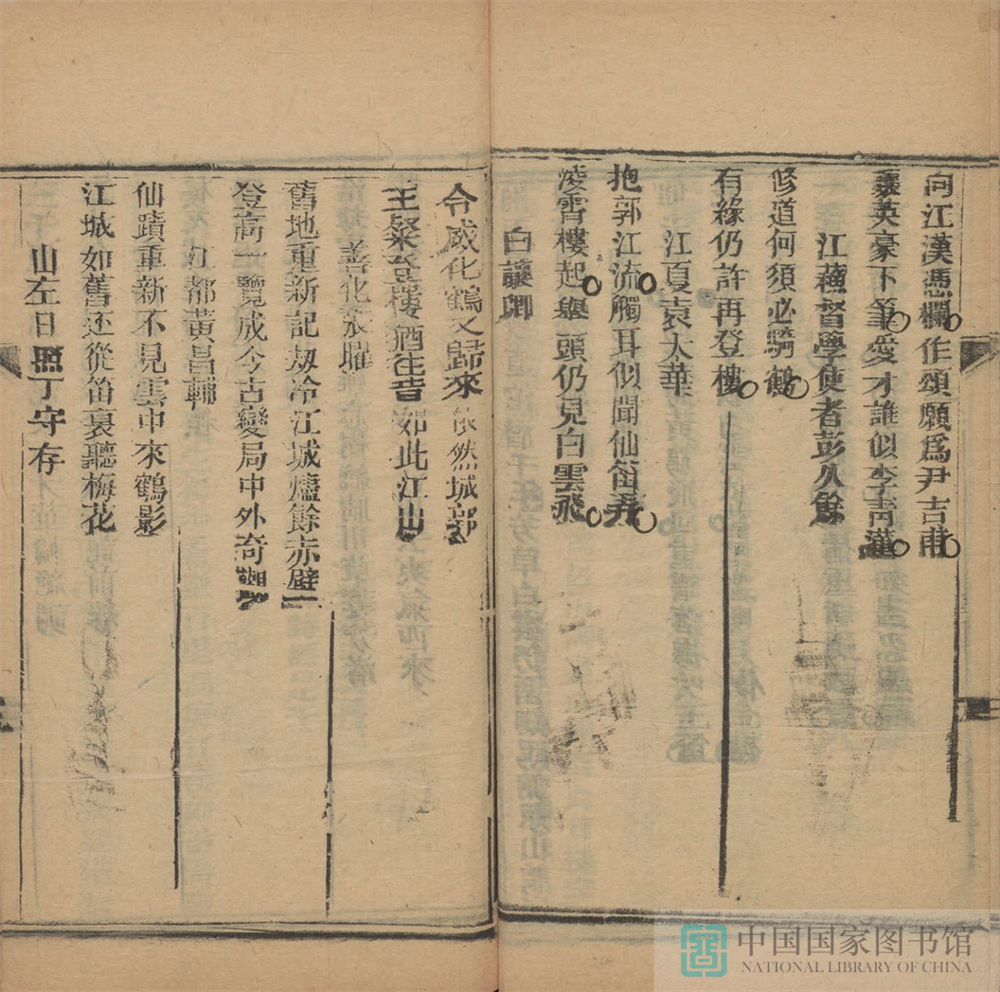 向江漢憑欄作頌願爲尹吉甫
襄英豪下筆愛才誰似李青蓮
江蘇督學使者彭久餘
修道何須必騎鶴
有緣仍許再登樓
江夏袁大華
抱郭江流觸耳似聞仙笛弄
凌霄樓起舉頭仍見白雲飛
白讓卿
令威化鶴又歸來依然城郭
王粲登樓猶往昔如此江山
善化張曜
舊地重新記劫冷江城爐餘赤壁一
登高一覽成今古變局中外奇
江都黃昌輔
仙蹟重新不見雲中來鶴影
江城如舊還從笛裏聽梅花
山左日照丁守存
中国国家图书馆
NATIONAL LIBRARY OF CHINA